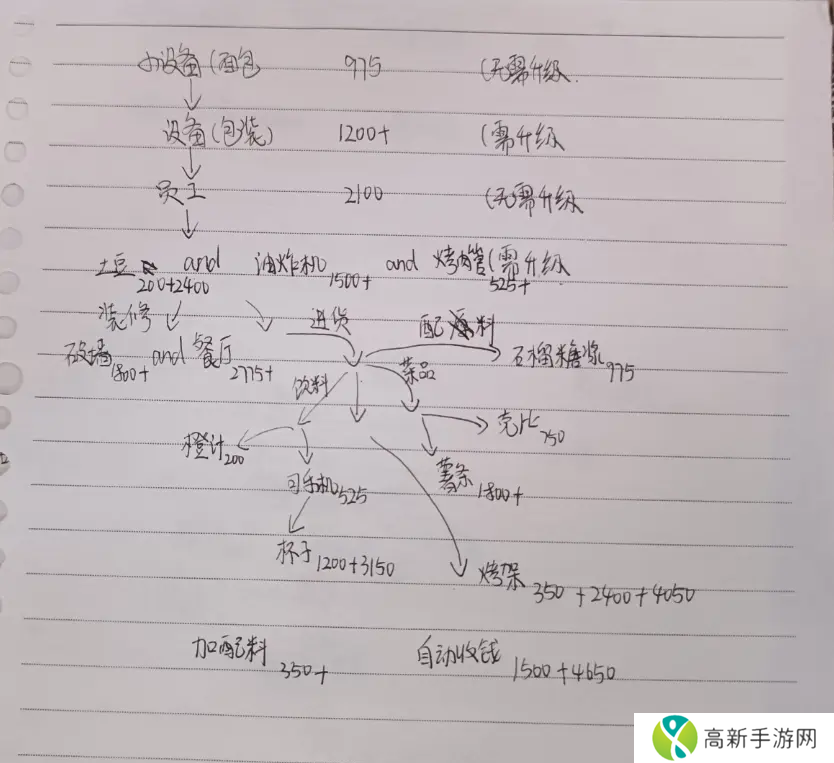 小设备(面包 975 (无需升级.
设备(包装) 1200+ (需升级
员工 2100 (无需升级
土豆 200+2400 and 油炸机 1500+ and 烤肉管(需升级 525+
装修 进货 配料
砍墙 1800+ and 餐厅 2775+ 石榴糖浆 975
饮料 菜品
橙汁 200 壳比 750
可乐机 525 薯条 1800+
杯子 1200+3150 烤架 350+2400+4050
加配料 350+ 自动收钱 1500+4650
高新手游网